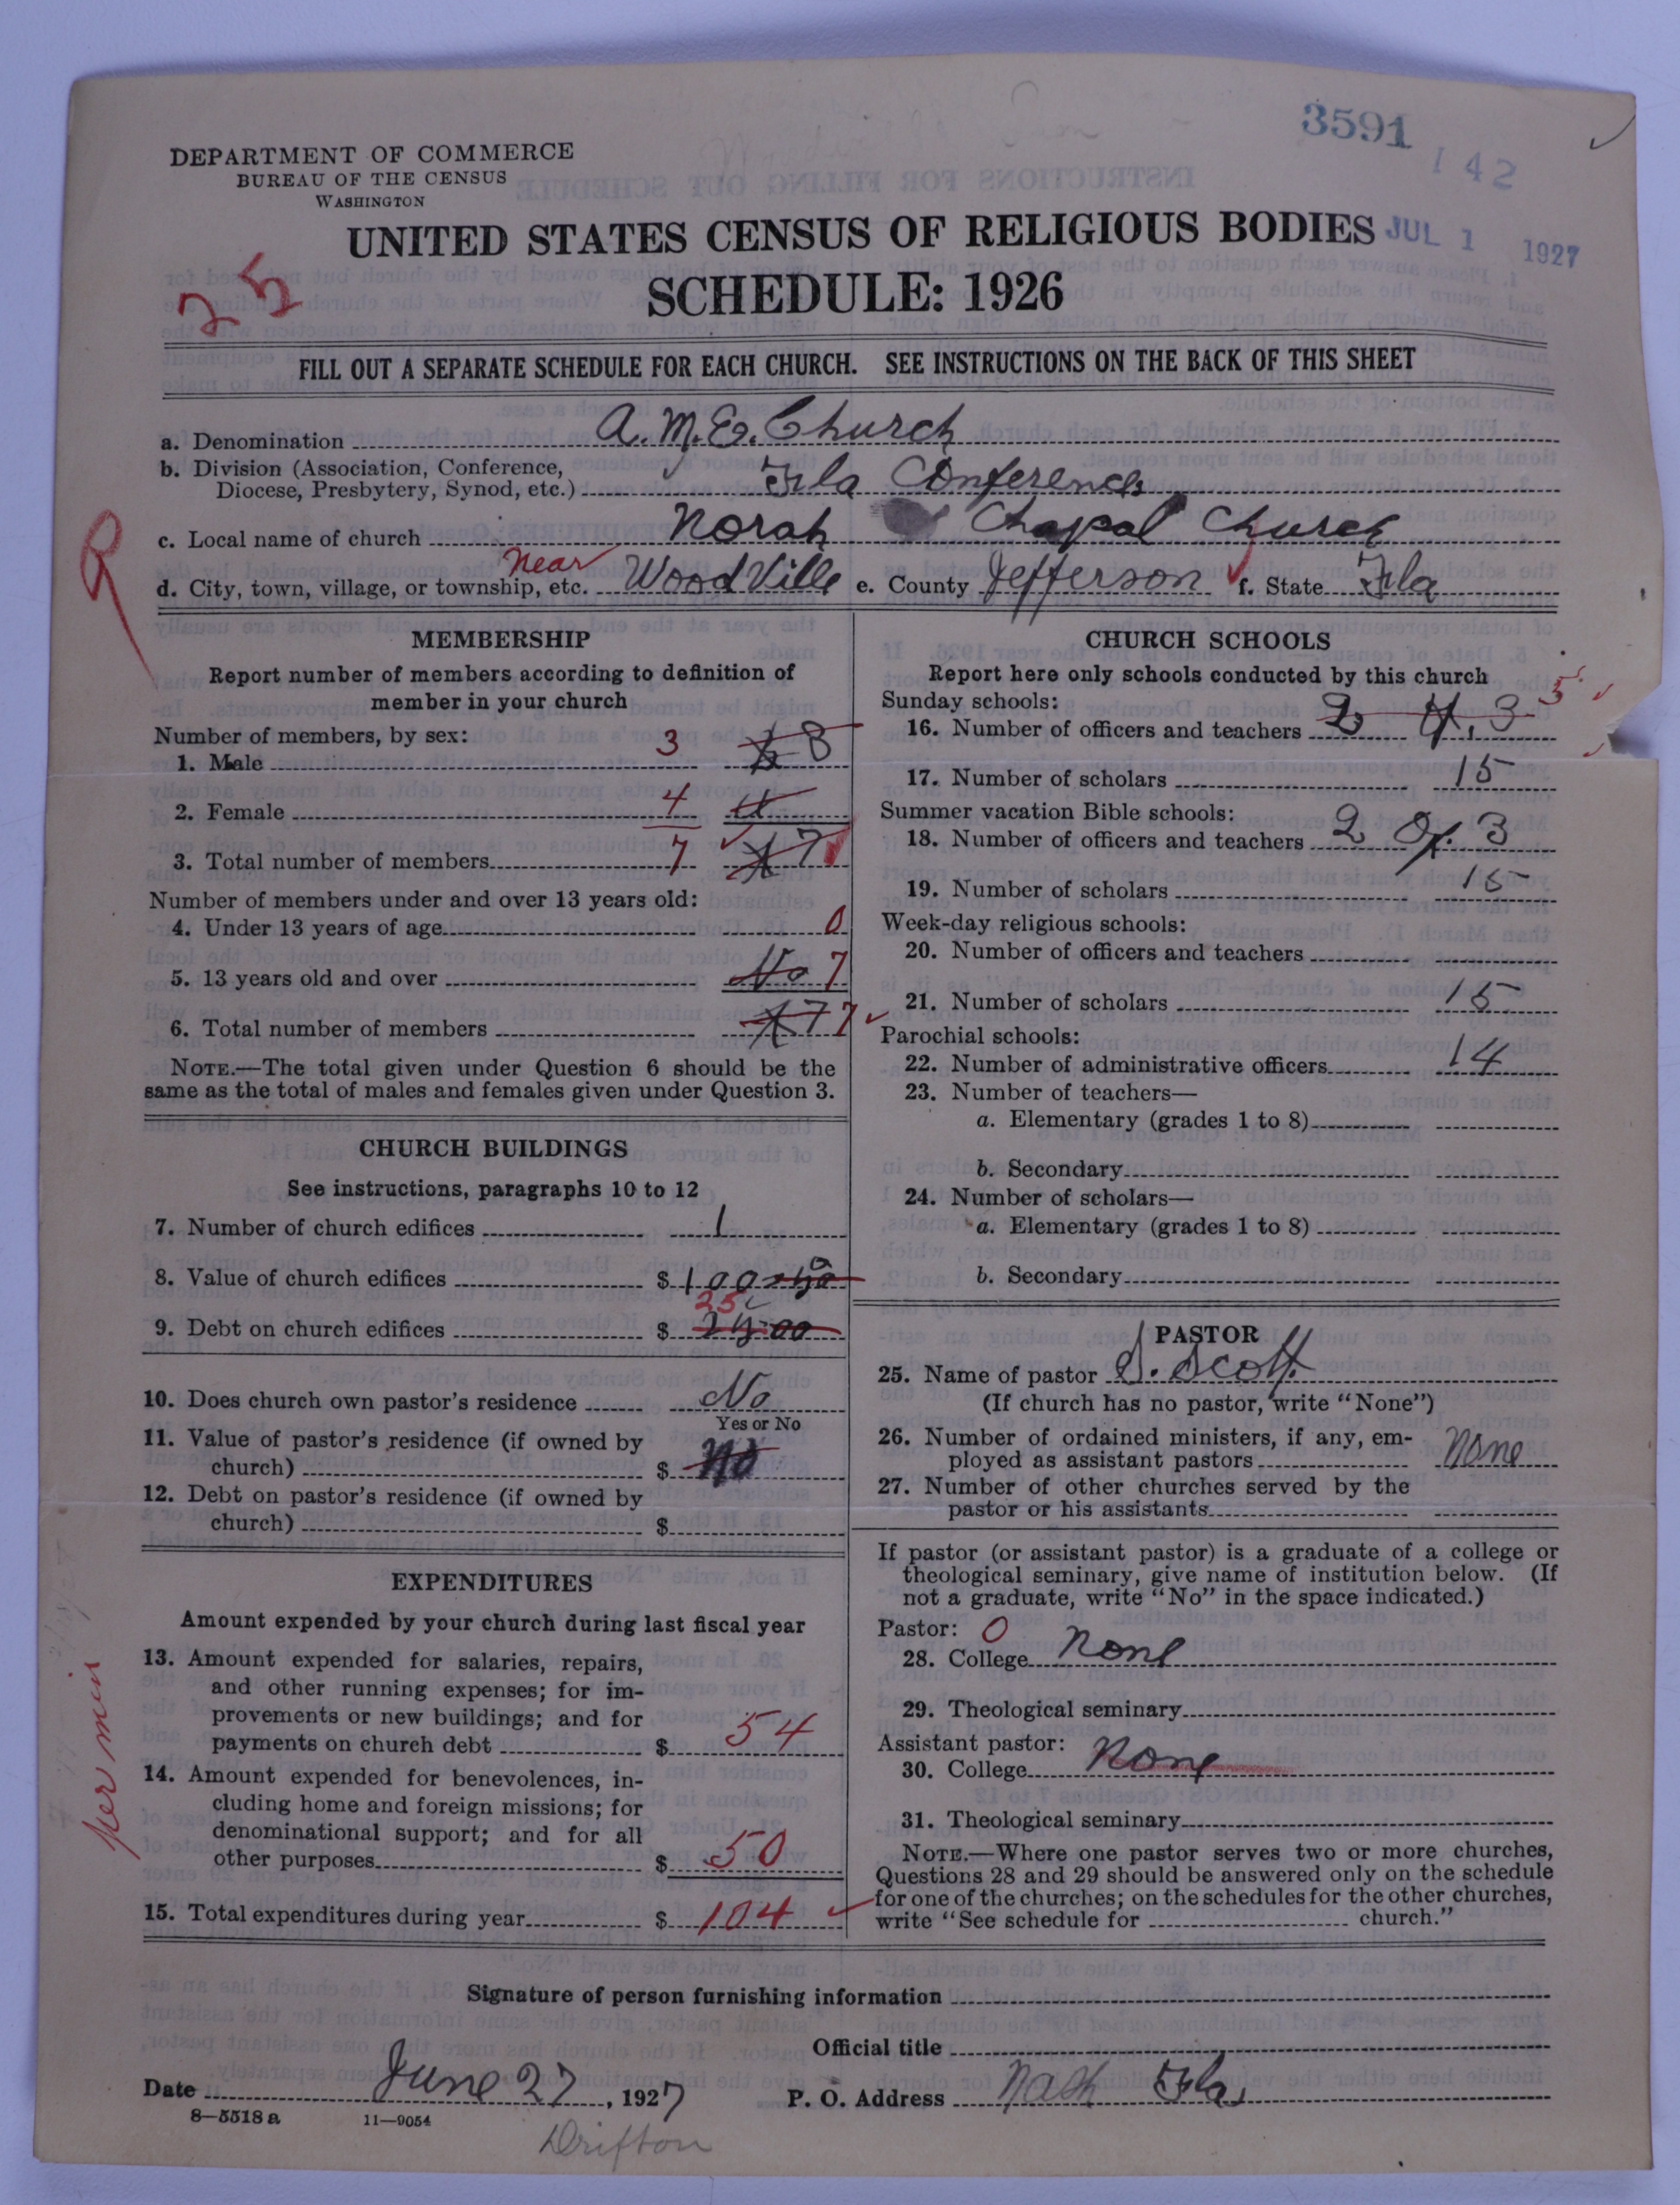 3591
142
DEPARTMENT OF COMMERCE
BUREAU OF THE CENSUS
WASHINGTON
UNITED STATES CENSUS OF RELIGIOUS BODIES
JUL 1 1927
SCHEDULE: 1926
25
FILL OUT A SEPARATE SCHEDULE FOR EACH CHURCH. SEE INSTRUCTIONS ON THE BACK OF THIS SHEET
a. Denomination A. M. E. Church
b. Division (Association, Conference,
Diocese, Presbytery, Synod, etc.) Fla Conference
c. Local name of church Norah Chapal Church
d. City, town, village, or township, etc. Near WoodVille e. County Jefferson f. State Fla
MEMBERSHIP
Report number of members according to definition of
member in your church
Number of members, by sex:
1. Male 3 8
2. Female 4
3. Total number of members 7 7
Number of members under and over 13 years old:
4. Under 13 years of age 0
5. 13 years old and over No 7
6. Total number of members 7 7
NOTE.—The total given under Question 6 should be the
same as the total of males and females given under Question 3.
CHURCH BUILDINGS
See instructions, paragraphs 10 to 12
7. Number of church edifices 1
8. Value of church edifices $ 100
9. Debt on church edifices $ 25
10. Does church own pastor's residence No
Yes or No
11. Value of pastor's residence (if owned by
church) $ No
12. Debt on pastor's residence (if owned by
church) $
EXPENDITURES
Amount expended by your church during last fiscal year
13. Amount expended for salaries, repairs,
and other running expenses; for im-
provements or new buildings; and for
payments on church debt $ 54
14. Amount expended for benevolences, in-
cluding home and foreign missions; for
denominational support; and for all
other purposes $ 50
15. Total expenditures during year $ 104
per min
CHURCH SCHOOLS
Report here only schools conducted by this church
Sunday schools:
16. Number of officers and teachers 2 3 5
17. Number of scholars 15
Summer vacation Bible schools:
18. Number of officers and teachers 2 3
19. Number of scholars 15
Week-day religious schools:
20. Number of officers and teachers
21. Number of scholars 15
Parochial schools:
22. Number of administrative officers 14
23. Number of teachers—
a. Elementary (grades 1 to 8)
b. Secondary
24. Number of scholars—
a. Elementary (grades 1 to 8)
b. Secondary
PASTOR
25. Name of pastor S. Scott
(If church has no pastor, write "None")
26. Number of ordained ministers, if any, em-
ployed as assistant pastors None
27. Number of other churches served by the
pastor or his assistants
If pastor (or assistant pastor) is a graduate of a college or
theological seminary, give name of institution below. (If
not a graduate, write "No" in the space indicated.)
Pastor: 0
28. College None
29. Theological seminary
Assistant pastor:
30. College None
31. Theological seminary
NOTE.—Where one pastor serves two or more churches,
Questions 28 and 29 should be answered only on the schedule
for one of the churches; on the schedules for the other churches,
write "See schedule for church."
Signature of person furnishing information
Official title
Date June 27, 1927 P. O. Address Nash Fla
8—5518 a 11—9054
Drifton